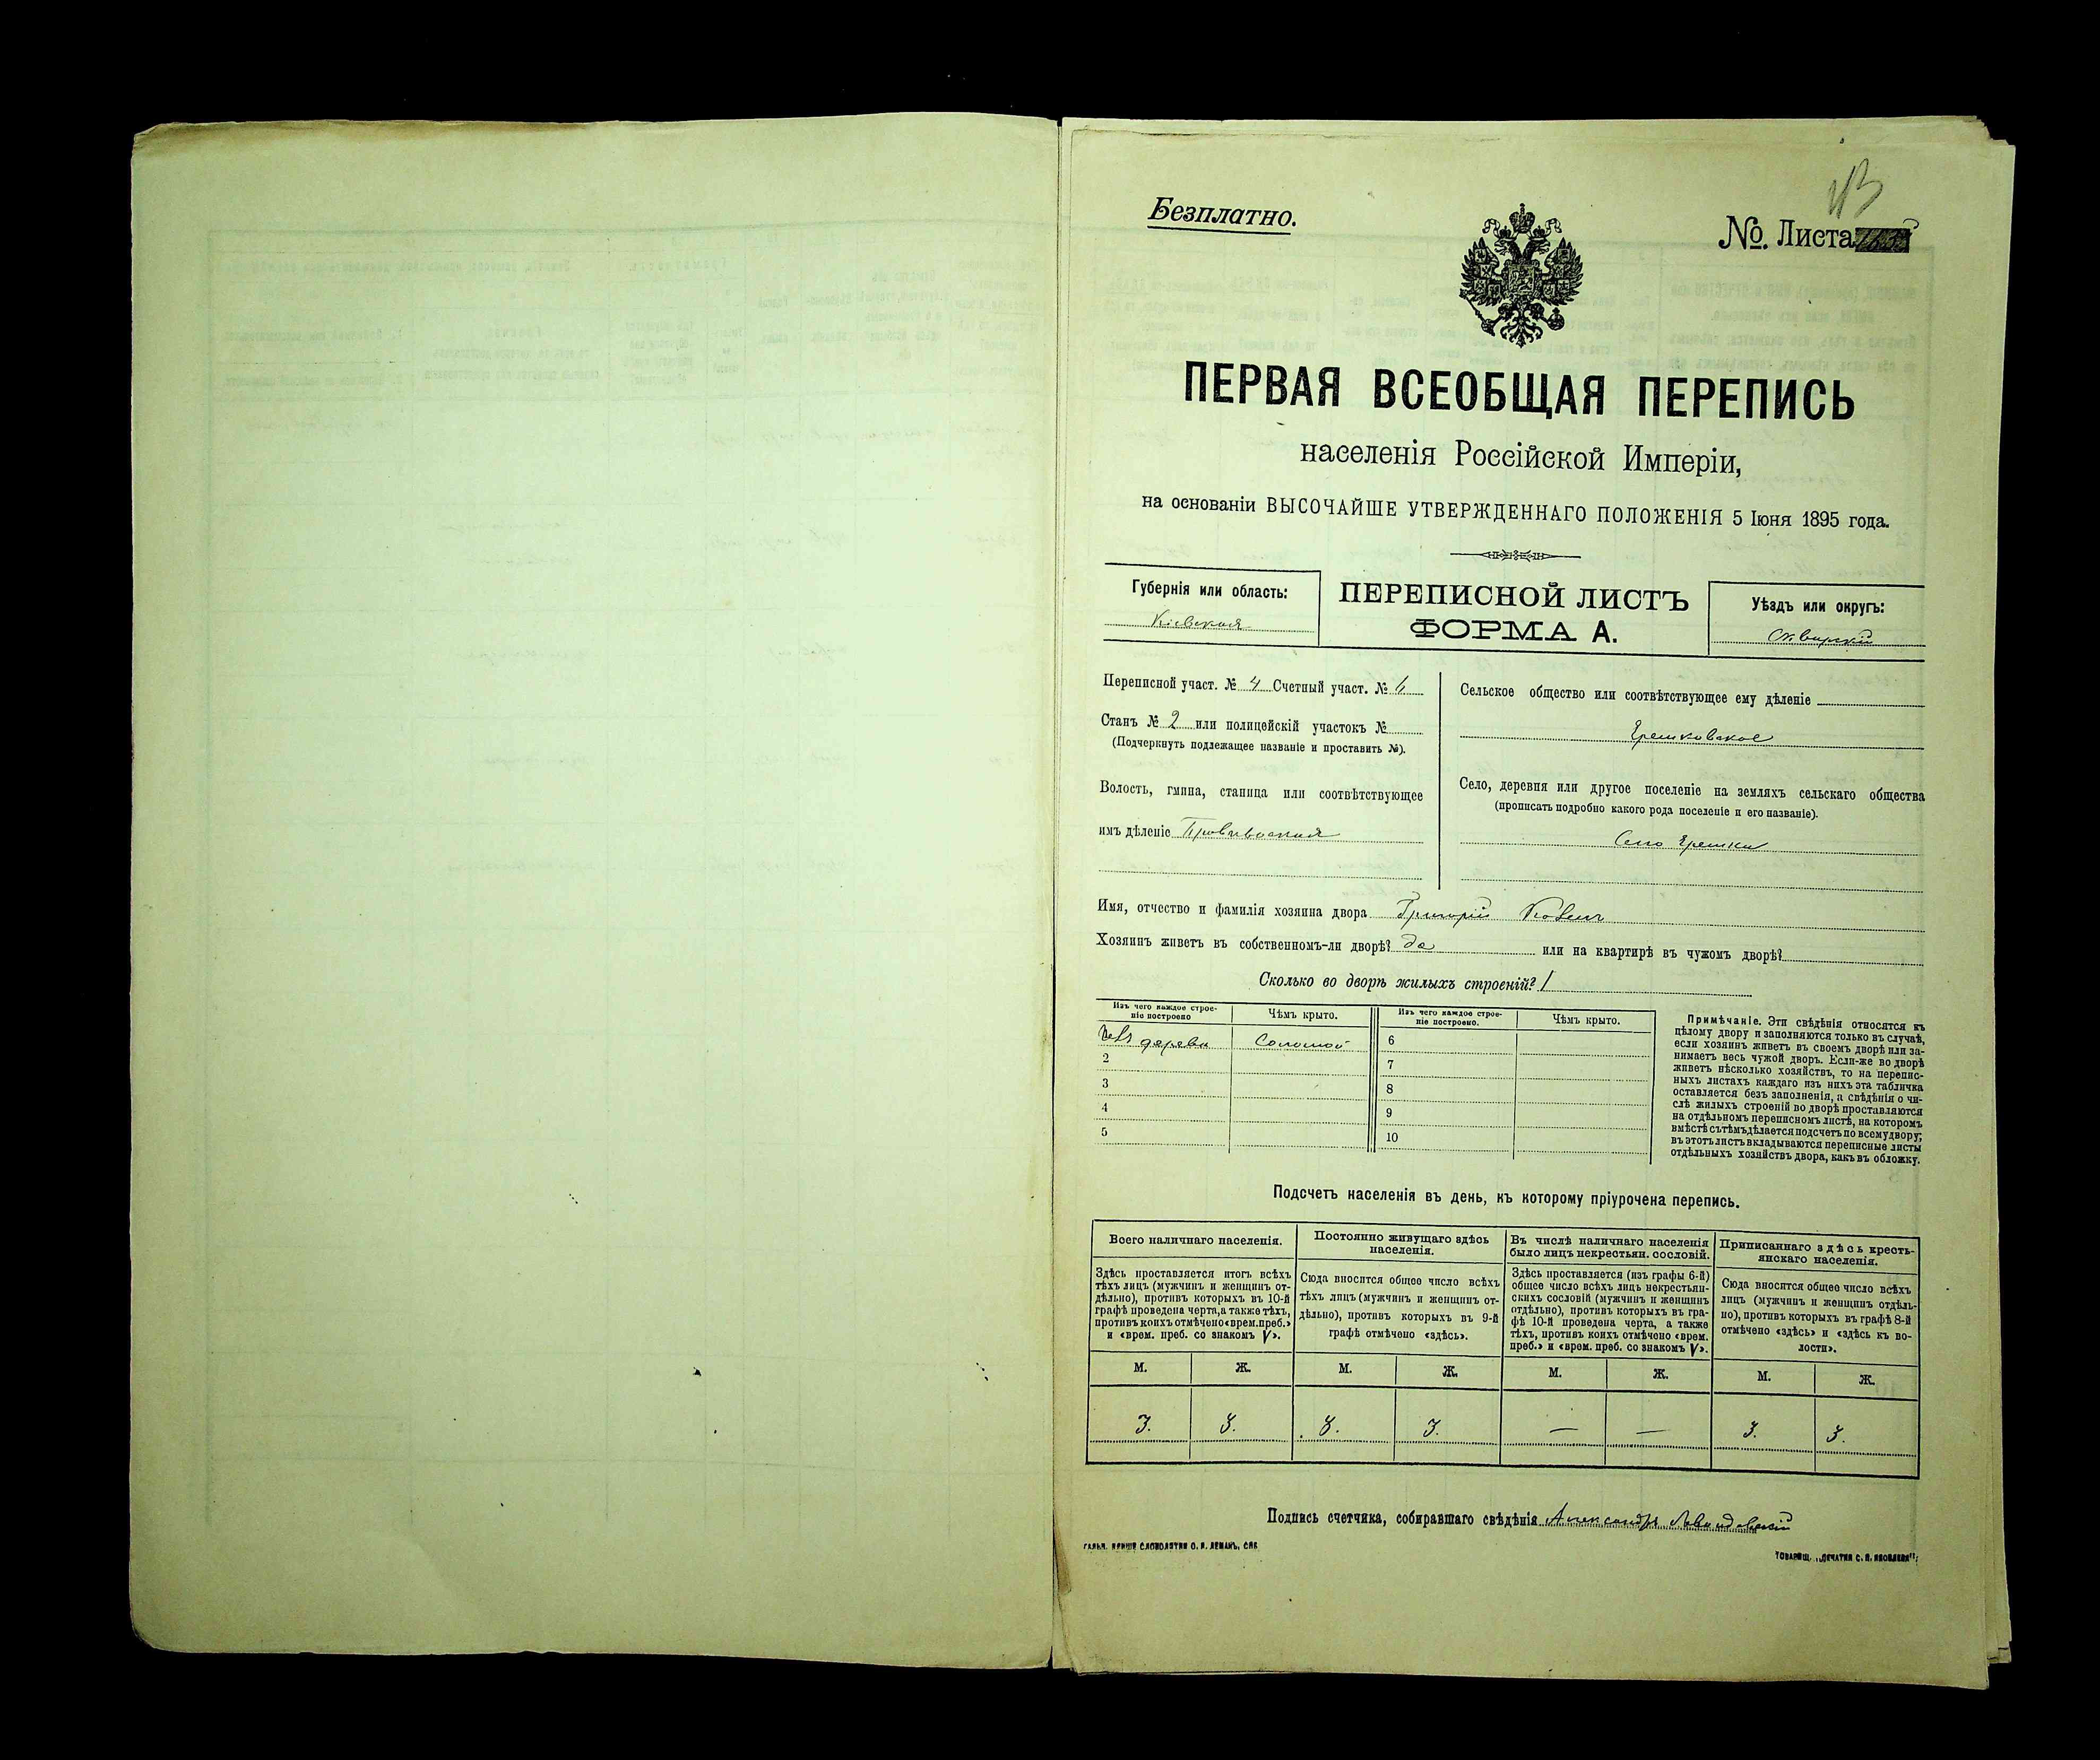 Безплатно.
№. Листа
ПЕРВАЯ ВСЕОБЩАЯ ПЕРЕПИСЬ
населенія Россійской Имперіи,
на основаніи ВЫСОЧАЙШЕ УТВЕРЖДЕННАГО ПОЛОЖЕНІЯ 5 Іюня 1895 года.
Губернія или область:
Кіевская
ПЕРЕПИСНОЙ ЛИСТЪ
ФОРМА А.
Уѣздъ или округъ:
Сквирскій
Переписной участ. № 4 Счетный участ. № 6
Станъ № 2 или полицейскій участокъ №
(Подчеркнуть подлежащее названіе и проставить №).
Волость, гмина, станица или соотвѣтствующее
имъ дѣленіе
Сельское общество или соотвѣтствующее ему дѣленіе
Ерешковское
Село, деревня или другое поселеніе на земляхъ сельскаго общества
(прописать подробно какого рода поселеніе и его названіе).
Село Ерешки
Имя, отчество и фамилія хозяина двора Григорій
Хозяинъ живетъ въ собственномъ-ли дворѣ? да или на квартирѣ въ чужомъ дворѣ?
Сколько во дворѣ жилыхъ строеній? 1
Изъ чего каждое строе-
ніе построено
Чѣмъ крыто.
Изъ чего каждое строе-
ніе построено.
Чѣмъ крыто.
дерева Соломой 6
2 7
3 8
4 9
5 10
Примѣчаніе. Эти свѣдѣнія относятся къ
цѣлому двору и заполняются только въ случаѣ,
если хозяинъ живетъ въ своемъ дворѣ или за-
нимаетъ весь чужой дворъ. Если-же во дворѣ
живетъ нѣсколько хозяйствъ, то на перепис-
ныхъ листахъ каждаго изъ нихъ эта табличка
оставляется безъ заполненія, а свѣдѣнія о чи-
слѣ жилыхъ строеній во дворѣ проставляются
на отдѣльномъ переписномъ листѣ, на которомъ
вмѣстѣ съ тѣмъ дѣлается подсчетъ по всему двору;
въ этотъ листъ вкладываются переписные листы
отдѣльныхъ хозяйствъ двора, какъ въ обложку.
Подсчетъ населенія въ день, къ которому пріурочена перепись.
Всего наличнаго населенія.
Здѣсь проставляется итогъ всѣхъ
тѣхъ лицъ (мужчинъ и женщинъ от-
дѣльно), противъ которыхъ въ 10-й
графѣ проведена черта, а также тѣхъ,
противъ коихъ отмѣчено «врем. преб.»
и «врем. преб. со знакомъ V».
Постоянно живущаго здѣсь
населенія.
Сюда вносится общее число всѣхъ
тѣхъ лицъ (мужчинъ и женщинъ от-
дѣльно), противъ которыхъ въ 9-й
графѣ отмѣчено «здѣсь».
Въ числѣ наличнаго населенія
было лицъ некрестьян. сословій.
Здѣсь проставляется (изъ графы 6-й)
общее число всѣхъ лицъ некрестьян-
скихъ сословій (мужчинъ и женщинъ
отдѣльно), противъ которыхъ въ гра-
фѣ 10-й проведена черта, а также
тѣхъ, противъ коихъ отмѣчено «врем.
преб.» и «врем. преб. со знакомъ V».
Приписаннаго здѣсь кресть-
янскаго населенія.
Сюда вносится общее число всѣхъ
лицъ (мужчинъ и женщинъ отдѣль-
но), противъ которыхъ въ графѣ 8-й
отмѣчено «здѣсь» и «здѣсь къ во-
лости».
М. Ж. М. Ж. М. Ж. М. Ж.
3. 3. 3. 3. — — 3. 3.
Подпись счетчика, собиравшаго свѣдѣнія Александръ
ТОВАРИЩ. „ПЕЧАТНЯ С. П. ЯКОВЛЕВА“